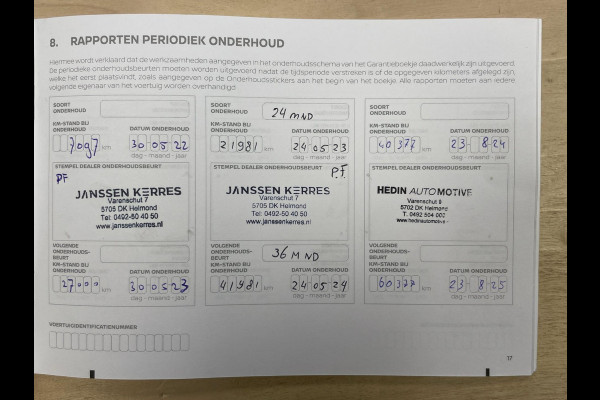 8. RAPPORTEN PERIODIEK ONDERHOUD
Hiermee wordt verklaard dat de werkzaamheden aangegeven in het onderhoudsschema van het Garantieboekje daadwerkelijk zijn uitgevoerd.
De periodieke onderhoudsbeurten moeten worden uitgevoerd nadat de tijdsperiode verstreken is of de opgegeven kilometers afgelegd zijn,
welke het eerst plaatsvindt, zoals aangegeven op de Onderhoudsstickers aan het begin van het boekje. Alle rapporten moeten aan iedere
volgende eigenaar van het voertuig worden overhandigd.
SOORT
ONDERHOUD
KM-STAND BIJ
ONDERHOUD
DATUM ONDERHOUD
7097 km 30 05 22
dag - maand - jaar
STEMPEL DEALER ONDERHOUDSBEURT
PF
JANSSEN KERRES
Varenschut 7
5705 DK Helmond
Tel: 0492-50 40 50
www.janssenkerres.nl
VOLGENDE
ONDERHOUDS-
BEURT
KM-STAND BIJ
ONDERHOUD
DATUM ONDERHOUD
27000 km 30 05 23
dag - maand - jaar
SOORT
ONDERHOUD
24 MND
KM-STAND BIJ
ONDERHOUD
DATUM ONDERHOUD
21981 km 24 05 23
dag - maand - jaar
STEMPEL DEALER ONDERHOUDSBEURT
P.F.
JANSSEN KERRES
Varenschut 7
5705 DK Helmond
Tel: 0492-50 40 50
www.janssenkerres.nl
VOLGENDE
ONDERHOUDS-
BEURT
36 MND
KM-STAND BIJ
ONDERHOUD
DATUM ONDERHOUD
41981 km 24 05 24
dag - maand - jaar
SOORT
ONDERHOUD
KM-STAND BIJ
ONDERHOUD
DATUM ONDERHOUD
40377 km 23 - 8 24
dag - maand - jaar
STEMPEL DEALER ONDERHOUDSBEURT
HEDIN AUTOMOTIVE
Varenschut 9
5702 DK Helmond
T. 0492 504 002
www.hedinautomotive.nl
VOLGENDE
ONDERHOUDS-
BEURT
KM-STAND BIJ
ONDERHOUD
DATUM ONDERHOUD
60377 km 23 - 8 25
dag - maand - jaar
VOERTUIGIDENTIFICATIENUMMER
17